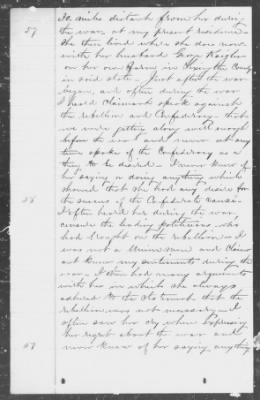 10 miles distant from her during
57 the war, at my present residence
she then lived where she does now
with her husband George
on her own farm in County
in said state. Just after the war
began, and often during the war
I heard Claimant speak against
the rebellion and Confederacy. that
we were getting along well enough
before the war and never at any
time spoke of the Confederacy as a
thing to be desired. I never knew of
her saying or doing anything which
showed that she had any desire for
58 the success of the Confederate cause.
I often heard her during the war,
censure the leading politicians who
had brought on the rebellion, as I
was not a Union man and Claim-
ant knew my sentiments during the
war. I then had many arguments
with her in which she always
adhered to the that the
rebellion was not necessary. I
often saw her cry when expressing
her regret about the war and
never knew of her saying anything